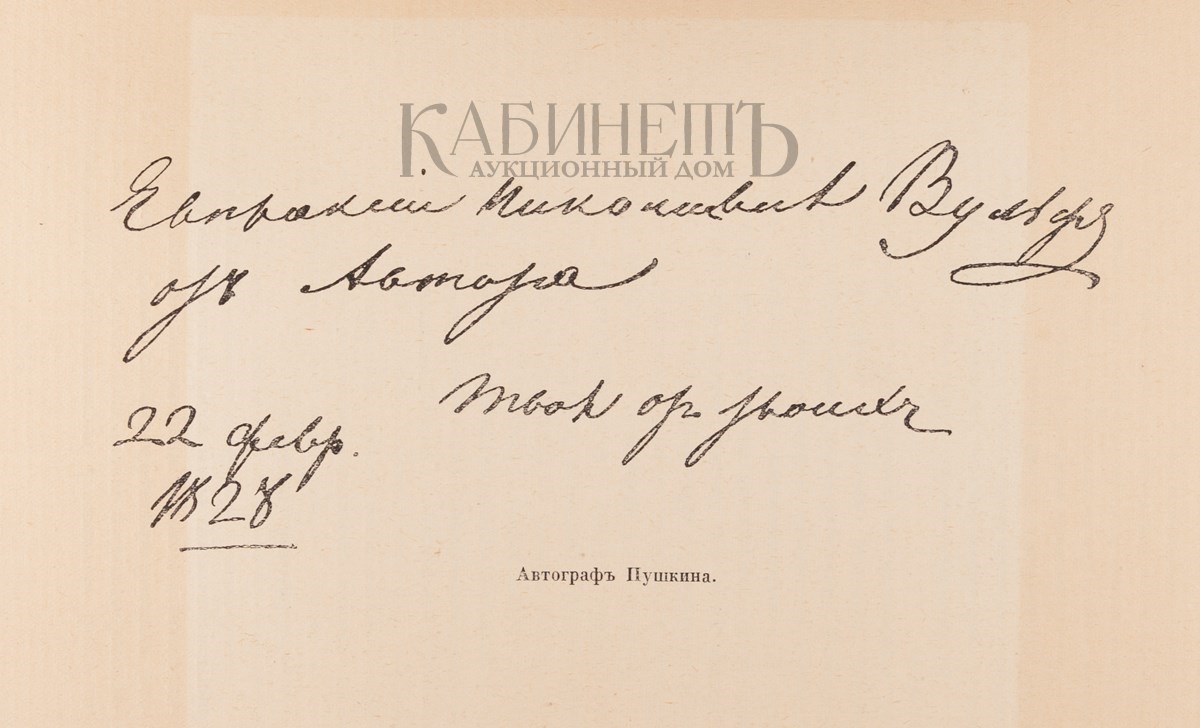 КАБИНЕТЪ
АУКЦИОННЫЙ ДОМ
Евпраксіи Николаевнѣ Вульфъ
отъ Автора
Твоя отъ твоихъ
22 февр.
1828
Автографъ Пушкина.